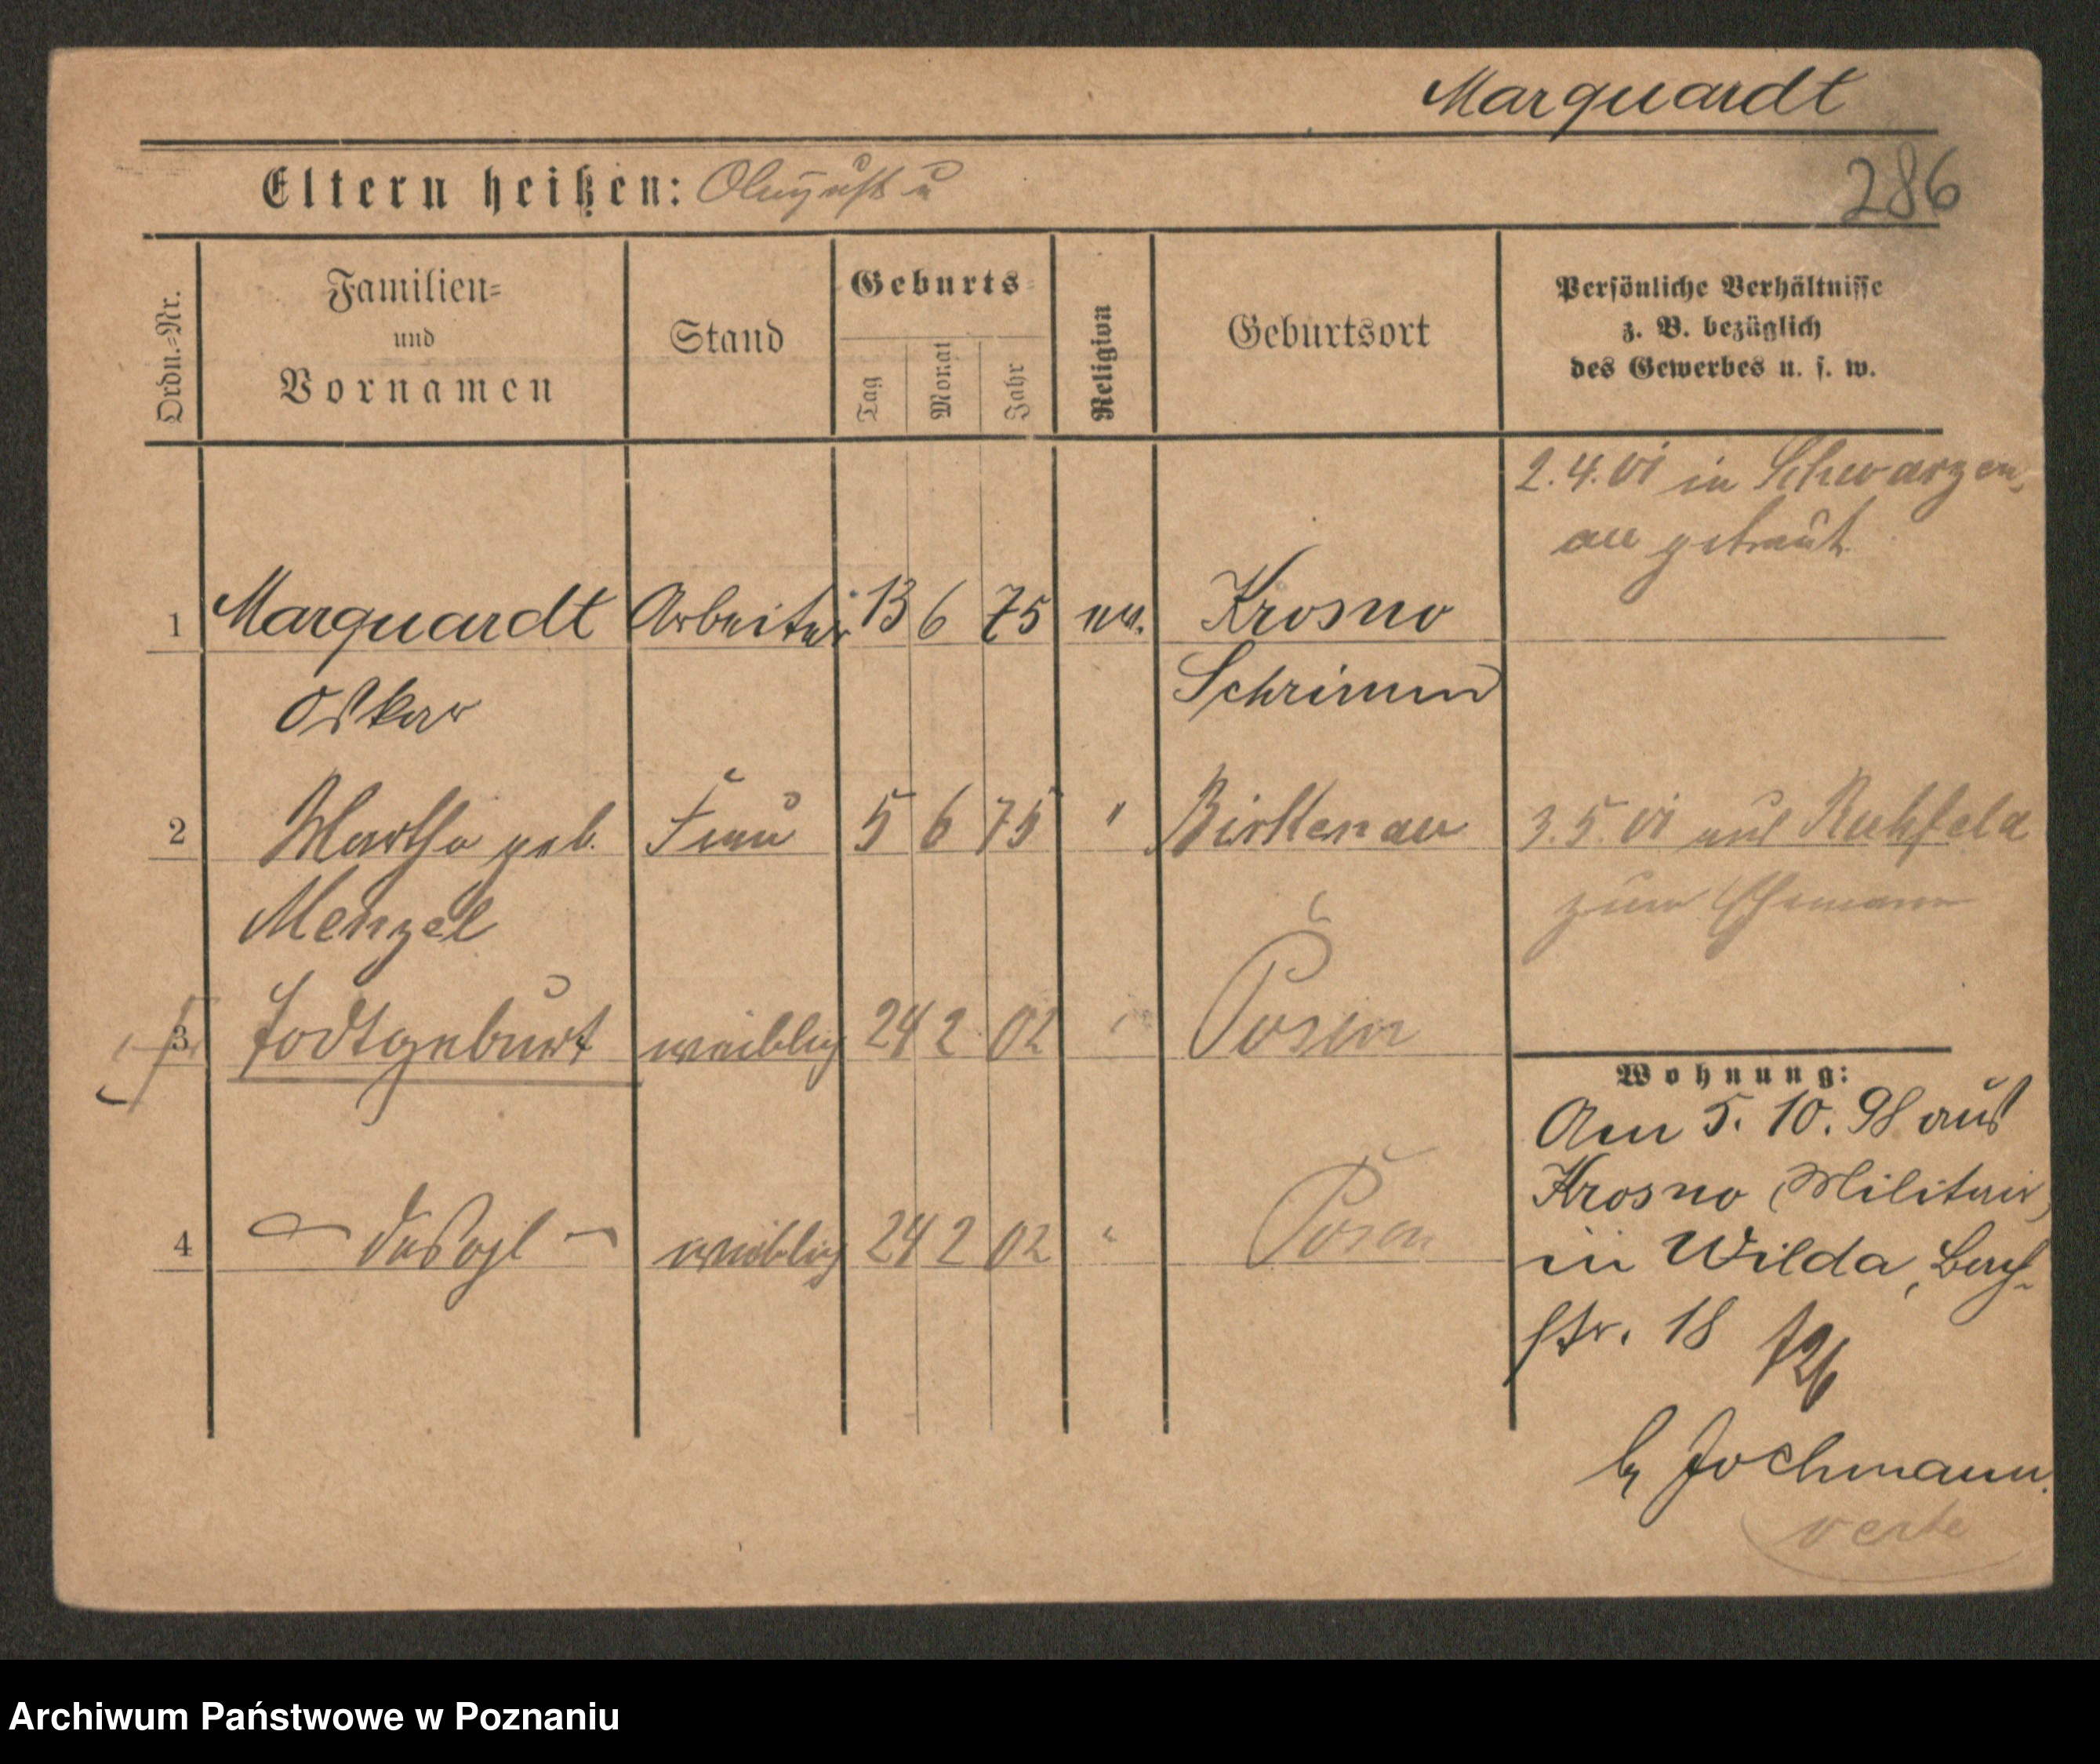 Marquardt
286
Eltern heißen: August u
Ordn.=Nr.
Familien=
und
Vornamen
Stand
Geburts=
Tag
Monat
Jahr
Religion
Geburtsort
Persönliche Verhältnisse
z. B. bezüglich
des Gewerbes u. s. w.
2.4.01 in Schwarzen-
au getraut.
1 Marquardt Arbeiter 13 6 75 ev. Krosno
Oskar Schrimm
2 Martha geb. Frau 5 6 75 " Birkenau
3.5.01 aus Ruhfeld
Menzel
zum Ehemann
3 Todtgeburt weiblich 24 2 02 " Posen
4 – desgl – weiblich 24 2 02 " Posen
Wohnung:
Am 5. 10. 98 aus
Krosno (Militair)
in Wilda, Bach-
str. 18
b Jochmann.
verte
Archiwum Państwowe w Poznaniu